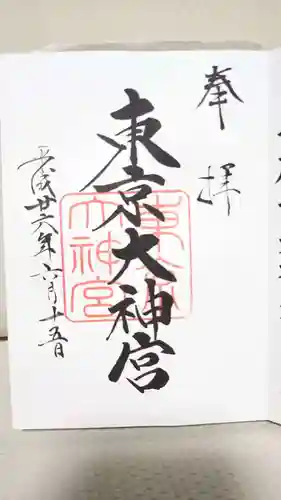 奉拝
東京大神宮
東京大神宮
平成廿六年六月十五日